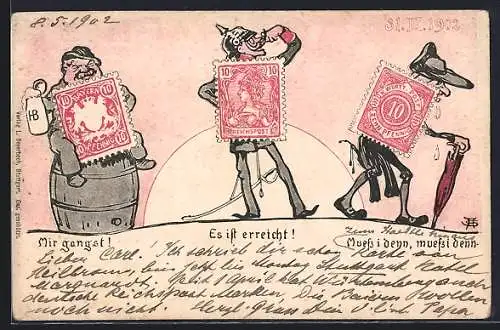 8.5.1902
31.III.1902
HB
10 BAYERN 10
10 PFENNIG 10
10 10
REICHSPOST
K. WÜRTT. POST
10
ZEHN PFENNIG
Verlag L. Ges. geschützt.
Mir gangst!
Es ist erreicht!
Mueß i denn, mueß i denn
Lieber Carl. Ich schrieb dir schon Karte von
Heilbronn, bin jetzt bis Stuttgart Hotel
Marquardt. Seit 1 April hat Württemberg auch
deutsche Reichspost Marken, Die Baiern wollen
noch nicht. Herzl. Gruss Dein Papa